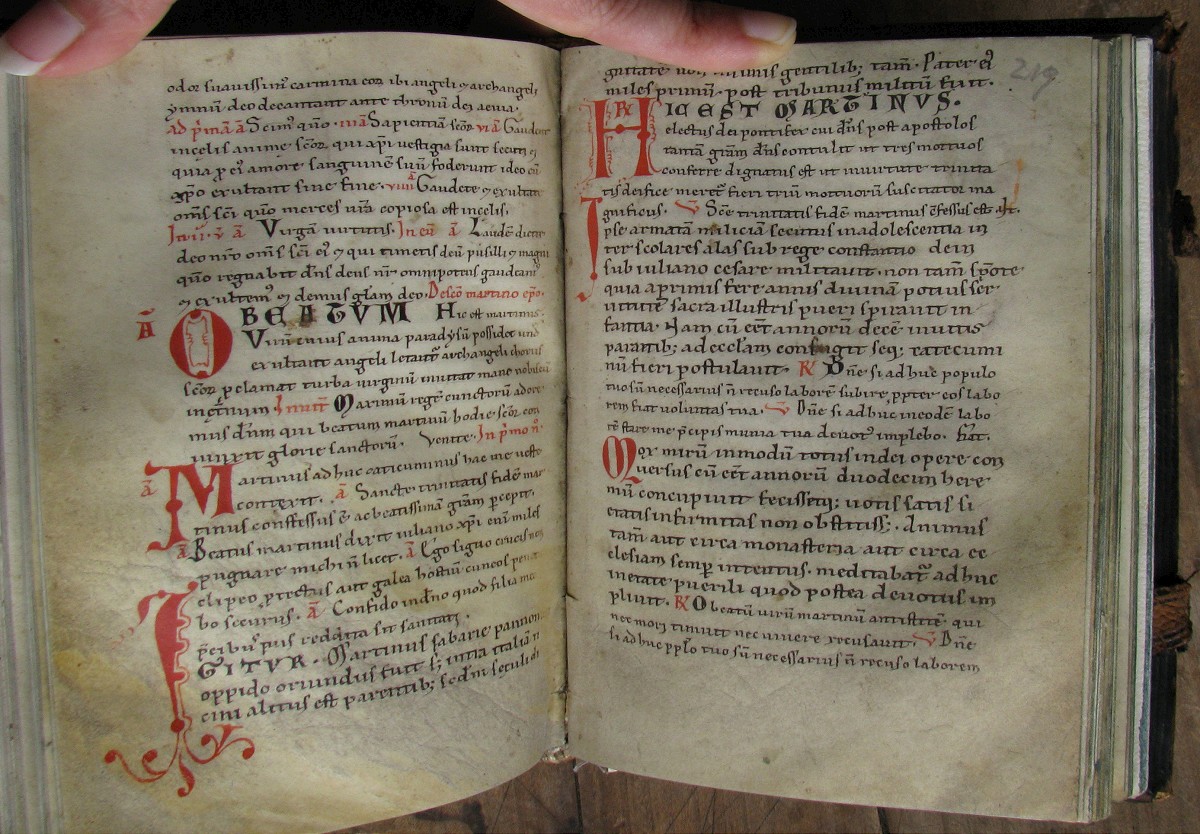 odor suauissim' carmina eoȝ ibi angeli & archangeli
ymnum deo decantant ante thronū dei aeuia.
ad p̄mā ā Scim' quō . iiiā Sapientiā scōȝ viā Gaudent
incelis anime scōȝ qui xp̄i uestigia sunt secuti &
quia p ei' amore sanguinē suū fuderunt ideo cū
xp̄o exultant sine fine . viiii ā Gaudete & exultate
om̄s sc̄i quō merces ur̄a copiosa est incelis.
In ii. v ā Virgā uirtutis. In eū ā Laudē dicite
deo nr̄o om̄s sc̄i ei' & qui timetis deū pusilli & magni
quō regnabit dn̄s deus nr̄ omnipotens gaudeam'
& exultem' & demus glam deo. De scō martino epō.
Ā O BEATVM Hic est martinus.
Virū cuius anima paradysū possidet und
exultant angeli letant̄ archangeli chorus
scōȝ pclamat turba uirginū inuitat mane nobiscū
inet̄num Inuit̄ Maximū regē cunctorū adore
mus dn̄m qui beatum martinū hodie scōȝ con
iunxit glorie sanctorū. Venite. In p̄mo n̄.
ā Martinus adhuc caticuminus hac me ueste
contexit. ā Sancte trinitatis fidē mar
tinus confessus ē ac beatissimā grām pcepit.
ā Beatus martinus dixit iuliano xp̄i enī miles
pugnare michi n̄ licet. ā Ego signo crucis non
clipeo ptectus aut galea hostiū cuneos penet
bo securus. ā Confido indn̄o quod filia me
p̄cibus tuis reddita sit sanitati.
IGITVR. Martinus sabarie pannon
oppido oriundus fuit s; intra italiā ti
cini altus est parentib; scdm seculi di
gnitatē non infimis gentilib; tam̄. Pater ei'
miles primū. post tribunus militū fuit.
219
R̄ HIC EST MARTINVS.
electus dei pontifex cui dn̄s post apostolos
tantā grām dn̄s contulit ut tres mortuos
conferre dignatus est ut inuirtute trinita
tis deifice meret̄ fieri triū mortuorū suscitator ma
gnificus. V Scē trinitatis fidē martinus c̄fessus est. ut.
Ipse armatam miliciā secutus inadolescentia in
ter scolares alas sub rege constantio dein
sub iuliano cesare militauit. non tam̄ spōte
quia a primis fere annis diuinā potius ser
uitutē sacra illustris pueri spirauit in
fantia. Nam cū eēt annorū decē inuitis
parantib; ad eccl̄am confugit seq; catecumi
nū fieri postulauit. R̄ Dn̄e si adhuc populo
tuo sū necessarius n̄ recuso laborē subire, ppter eos labo
rem fiat uoluntas tua. V Dn̄e si adhuc ineodē labo
rē stare me p̄cipis munia tua deuot' implebo. fiat.
Mox mirū inmodū totus indei opere con
uersus cū eēt annorū duodecim here
mū concupiuit fecisseq; uotis satis si
etatis infirmitas non obstitiss;. Animus
tam̄ aut circa monasteria aut circa ec
clesiam semp intentus. meditabat̄ adhuc
inetate puerili quod postea deuotus im
pleuit. R̄ O beatū uirū martinū antistitē qui
nec mori timuit nec uiuere recusauit. V Dn̄e
si adhuc pplo tuo sū necessarius n̄ recuso laborem